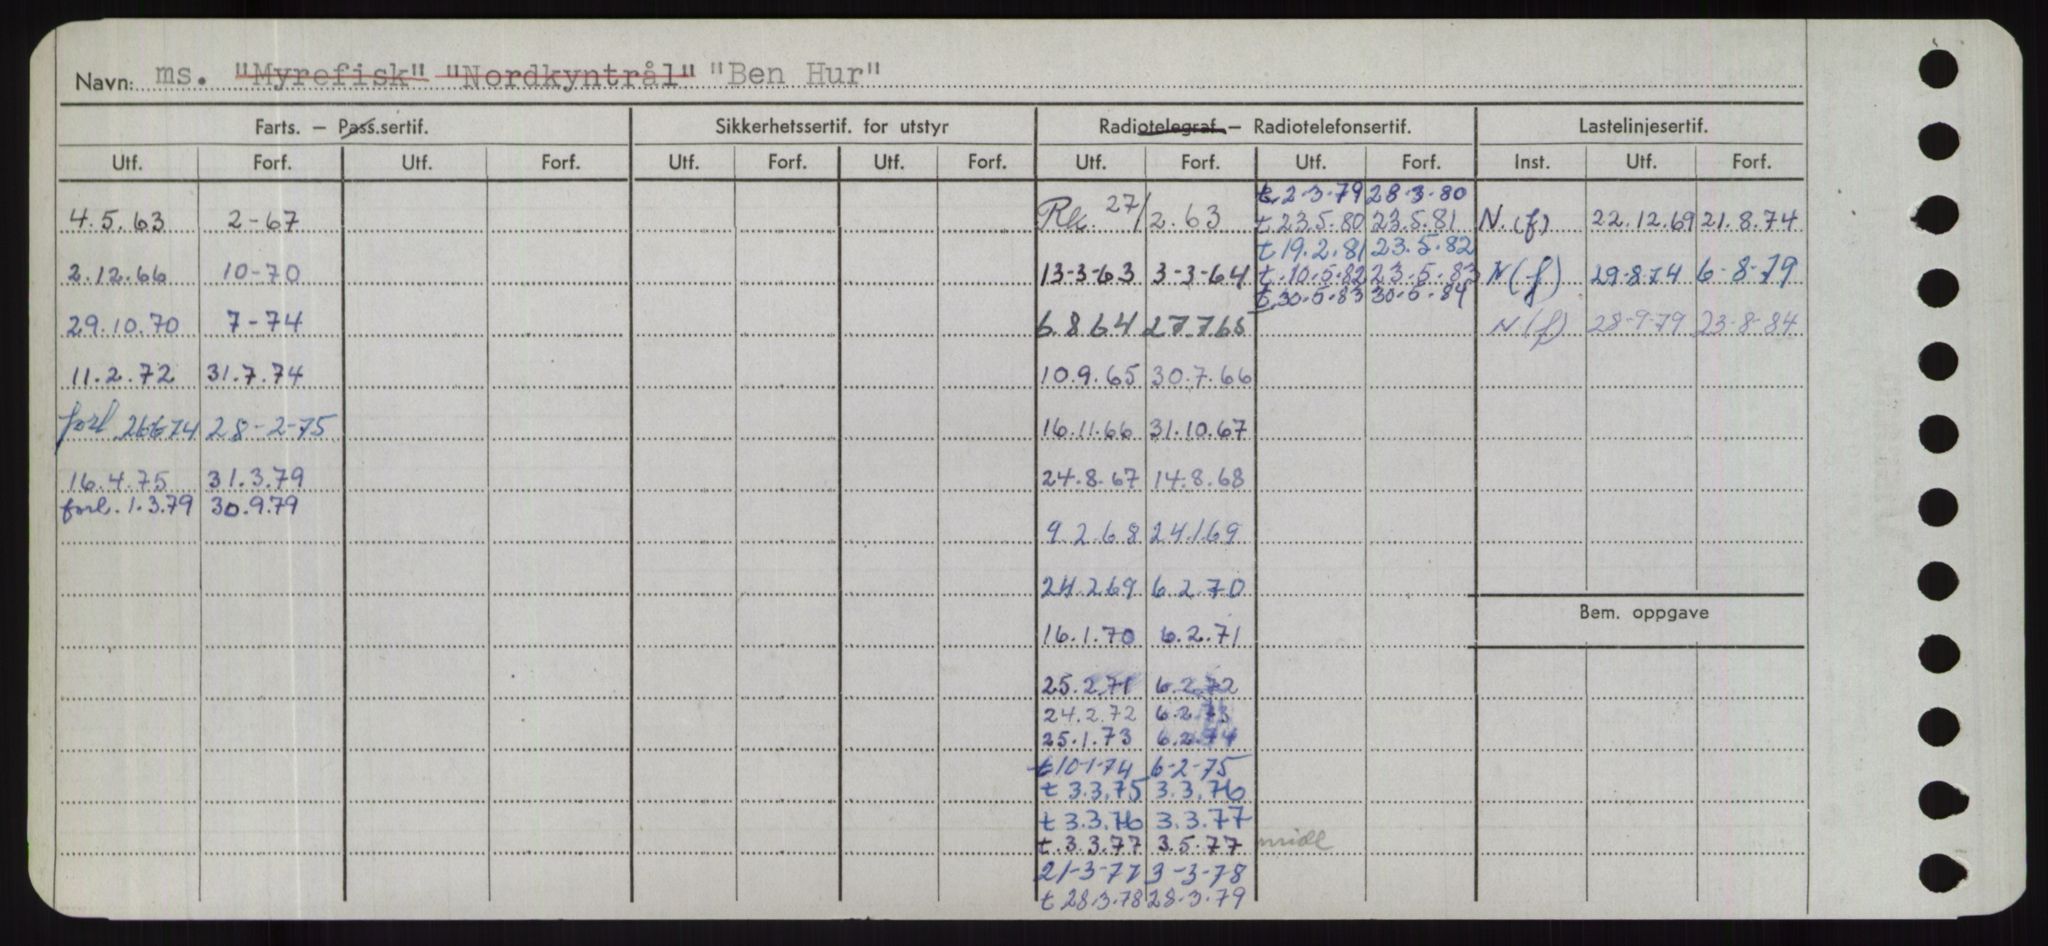 Navn: ms. "Myrefisk" "Nordkyntrål" "Ben Hur"
Farts. – Pass.sertif. Sikkerhetssertif. for utstyr Radiotelegraf – Radiotelefonsertif. Lastelinjesertif.
Utf. Forf. Utf. Forf. Utf. Forf. Utf. Forf. Utf. Forf. Utf. Forf. Inst. Utf. Forf.
t. 2.3.79 28.3.80
4.5.63 2-67 Rk. 27/2.63 t 23.5.80 23.5.81 N.(f) 22.12.69 21.8.74
t 19.2.81 23.5.82
2.12.66 10-70 13-3-63 3-3-64 t.10.5.82 23.5.83 N(f) 29.8.74 6-8-79
t.30.5.83 30.5.84
29.10.70 7-74 6.8.64 27.7.65 N(f) 28-9-79 23-8-84
11.2.72 31.7.74 10.9.65 30.7.66
forl 26674 28-2-75 16.11.66 31.10.67
16.4.75 31.3.79 24.8.67 14.8.68
forl. 1.3.79 30.9.79
9.2.68 24.1.69
24.2.69 6.2.70
Bem. oppgave
16.1.70 6.2.71
25.2.71 6.2.72
24.2.72 6.2.73
25.1.73 6.2.74
t 10-1-74 6-2-75
t 3.3.75 3.3.76
t 3.3.76 3.3.77
t.3.3.77 3.5.77 midl
21-3-77 3-3-78
t 28.3.78 28.3.79